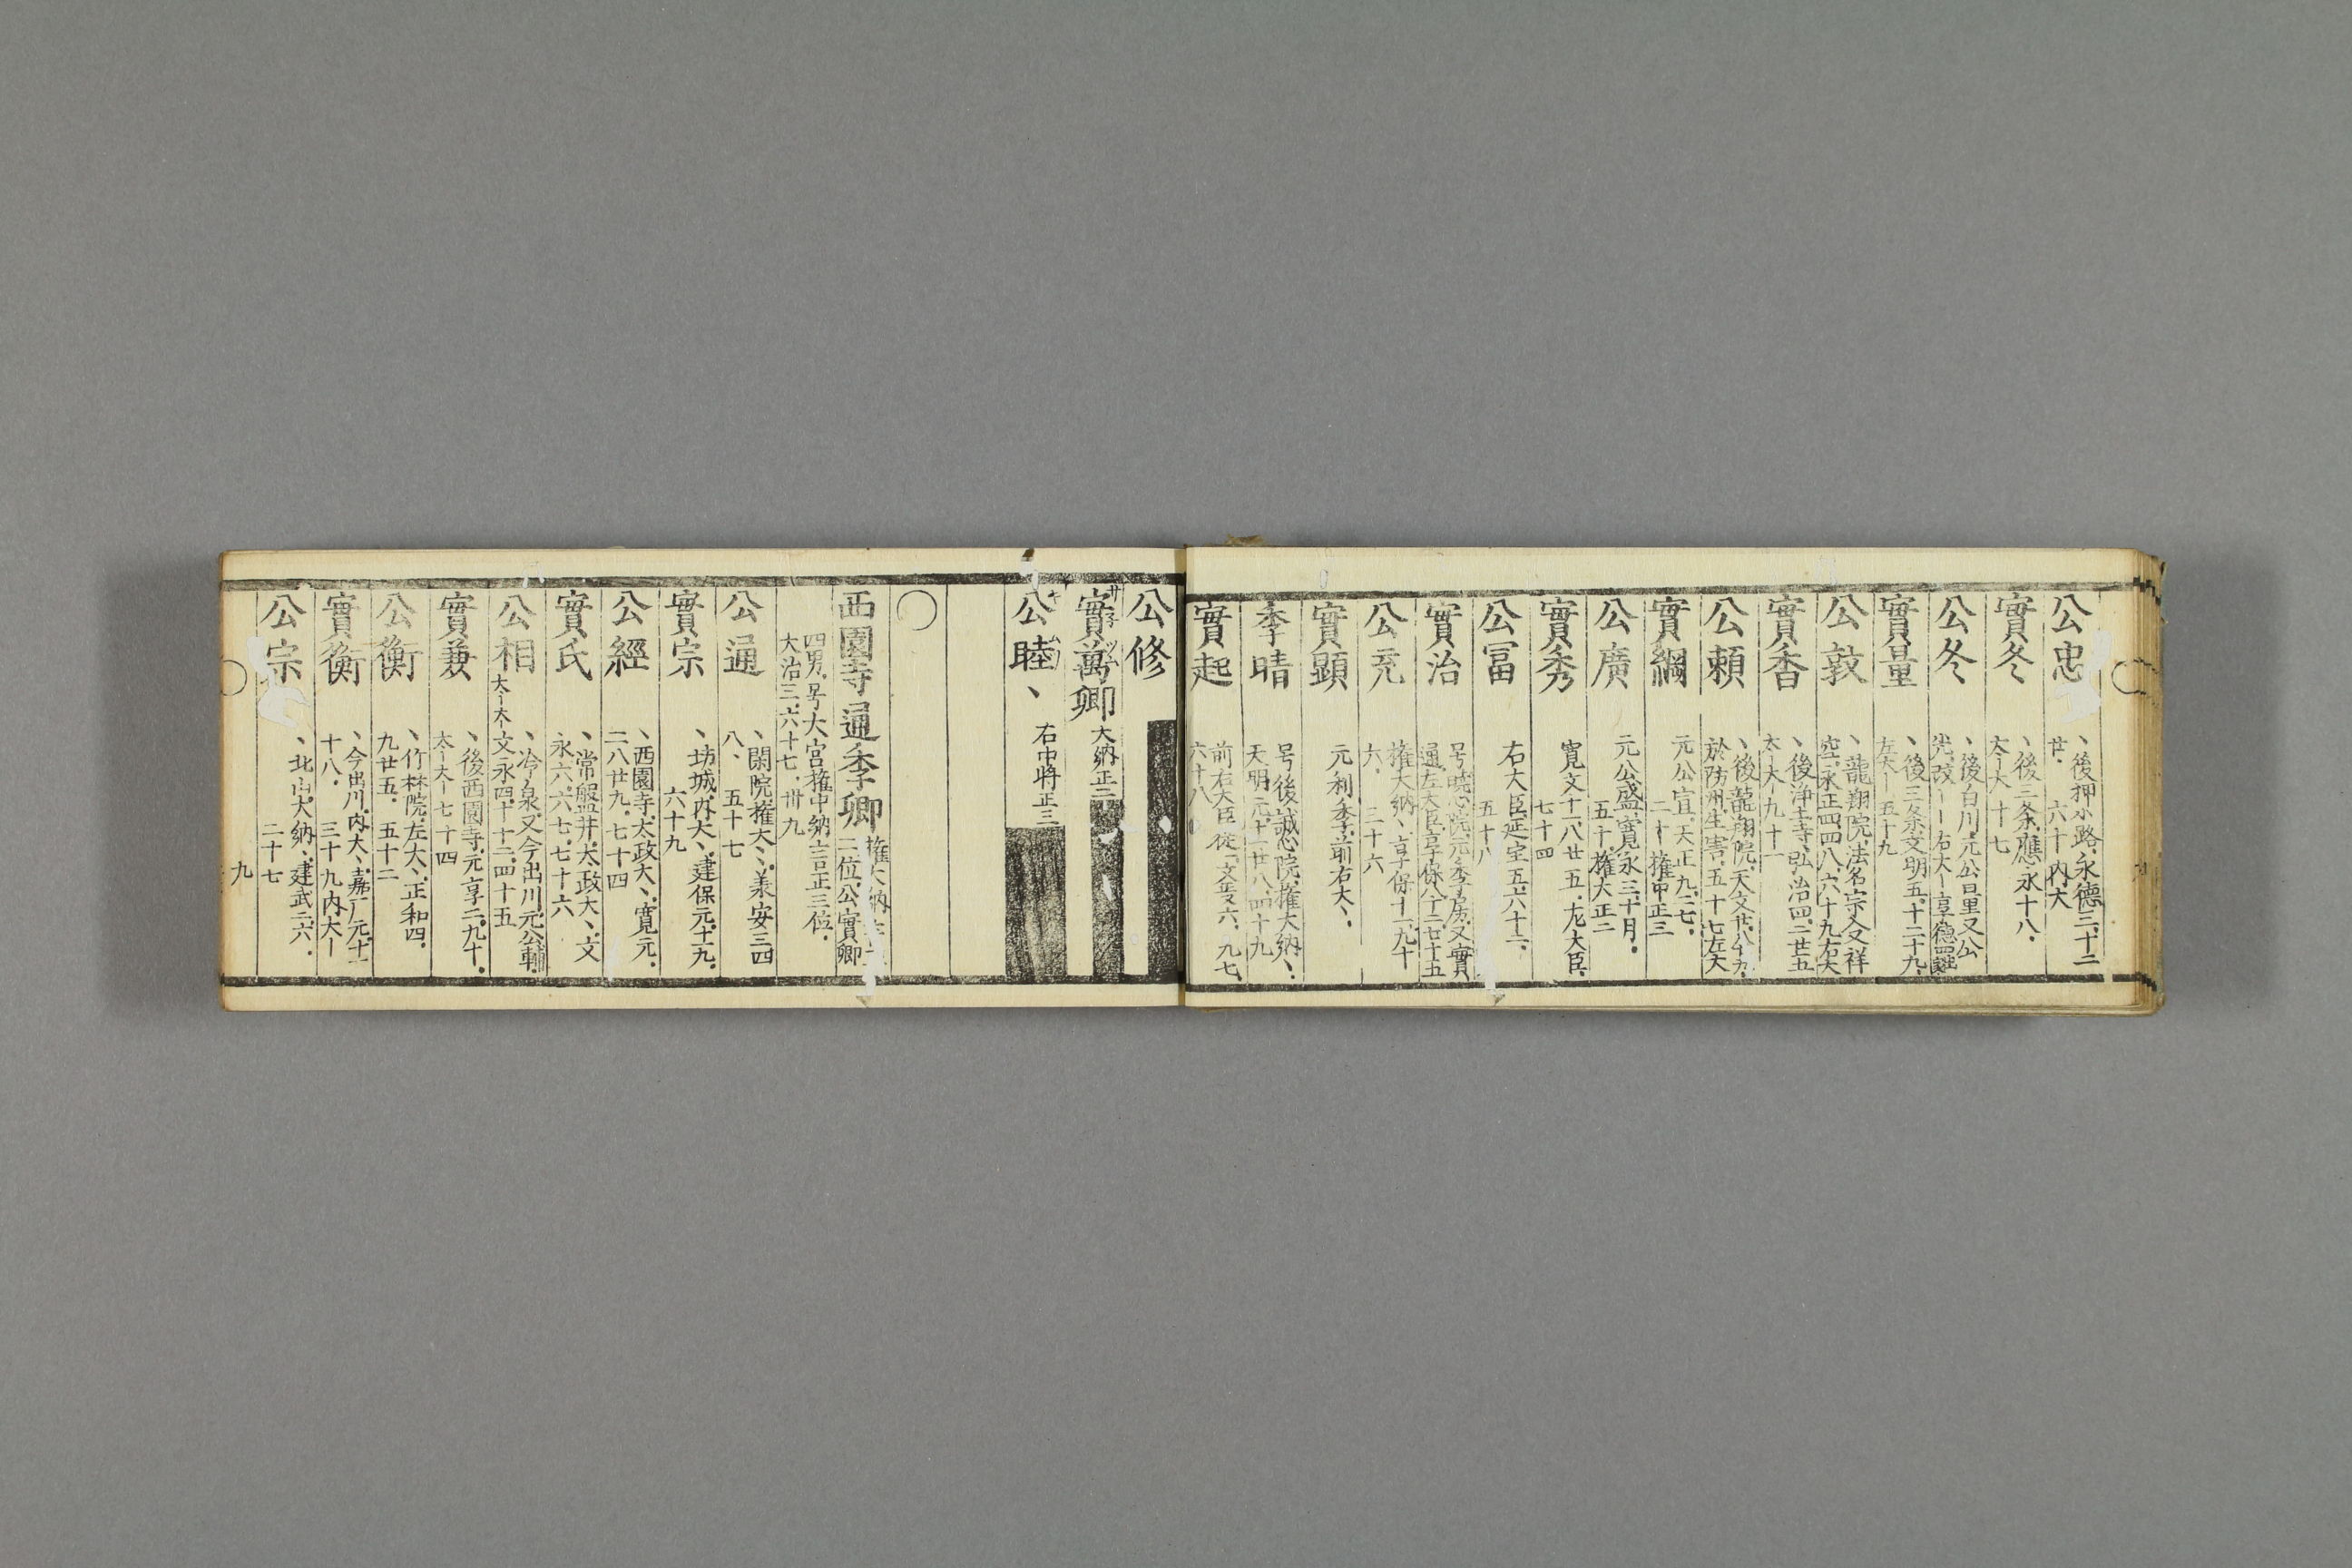 公忠 、後押小路、永德三、十二
廿、六十 内大
實冬 、後三条、應永十八、
太ー大 十七
公冬 、後白川、元公量又公
光、改ーー右大ー享德
實量 、後三条文明五、十二十九、
左大ー 五十九
公敦 、龍翔院、法名宗又祥
空、永正四四八、六十九右大
實香 、後浄土寺弘治四、二廿五
太ー大九十一
公頼 、後龍翔院、天文廿、八廿九、
於防州生害、五十七左大
實綱 元公宜、天正九、二七、
二十 権中正三
公廣 元公盛寛永三、十月、
五十、権大正二
實秀 寛文十一、八廿五、左大臣、
七十四
公冨 右大臣延宝五六十二、
五十八
實治 号暁心院、元季房、又實
通、左大臣享保八、十二、七十五
公充 権大納、享保十一、九十
六、三十六
實顕 元利季、前右大、、
季晴 号後誠心院、権大納、、
天明元、十一廿八、四十九
實起 前右大臣従一文政六、九七、
六十八
公修
實萬卿 大納正二
公睦、 右中将正三
西園寺通季卿 権大納言
二位公實卿
四男、号大宮権中納言正三位、
大治三、六十七、卅九
公通 、閑院権大、、羕安三四
八、 五十七
實宗 、坊城、内大、、建保元、十二九、
六十九
公經 、西園寺、太政大、、寛元、
二八廿九、七十四
實氏 、常盤井、太政大、、文
永六、六七、七十六
公相 太ー大ー 、冷泉、又今出川、元公輔、
文永四、十十二、四十五
實兼 、後西園寺、元享二、九十、
太ー大ー七十四
公衡 、竹林院、左大、、正和四、
九廿五、五十二
實衡 、今出川、内大、、嘉厂元、十一
十八、三十九内大ー
公宗 、北山、大納、、建武二、六、
二十七
九